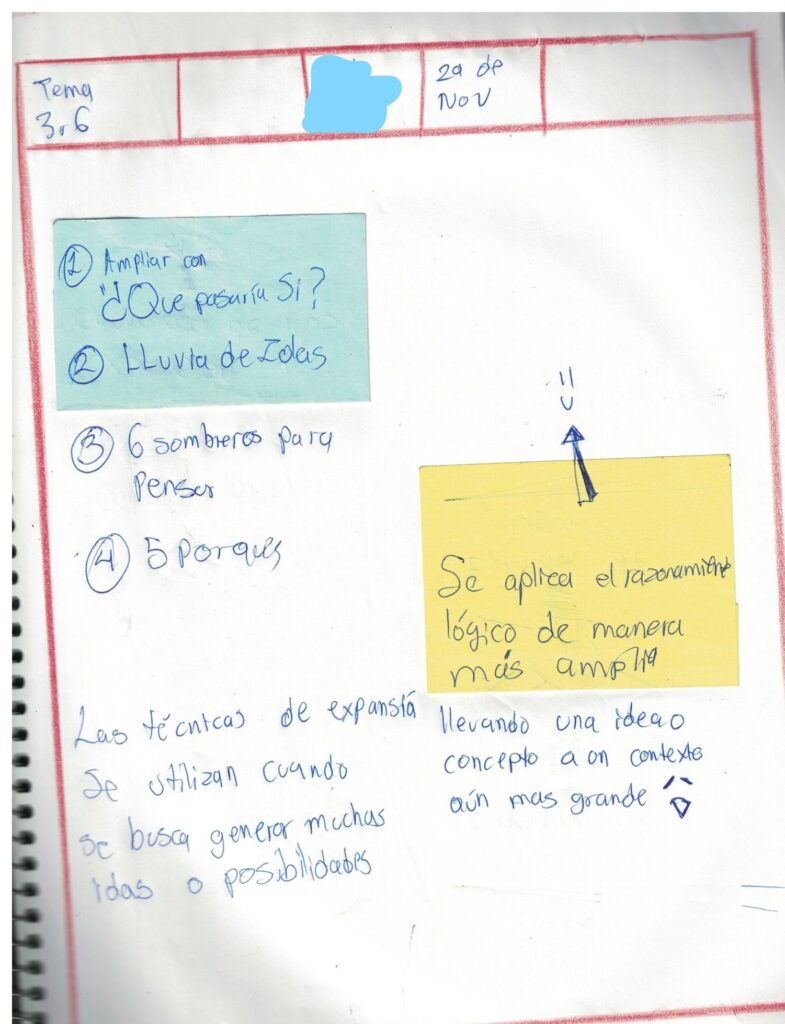 Tema
3.6
29 de
Nov
1 Ampliar con
"¿Que pasaría Si?
2 LLuvia de Idas
3 6 sombreros para
Penser
4 5 Porques
Se aplica el razonamiento
lógico de manera
más amplia
Las técnicas de expansió
se utilizan cuando
se busca generar muchas
idas o posibilidades
llevando una idea o
concepto a un contexto
aún mas grande